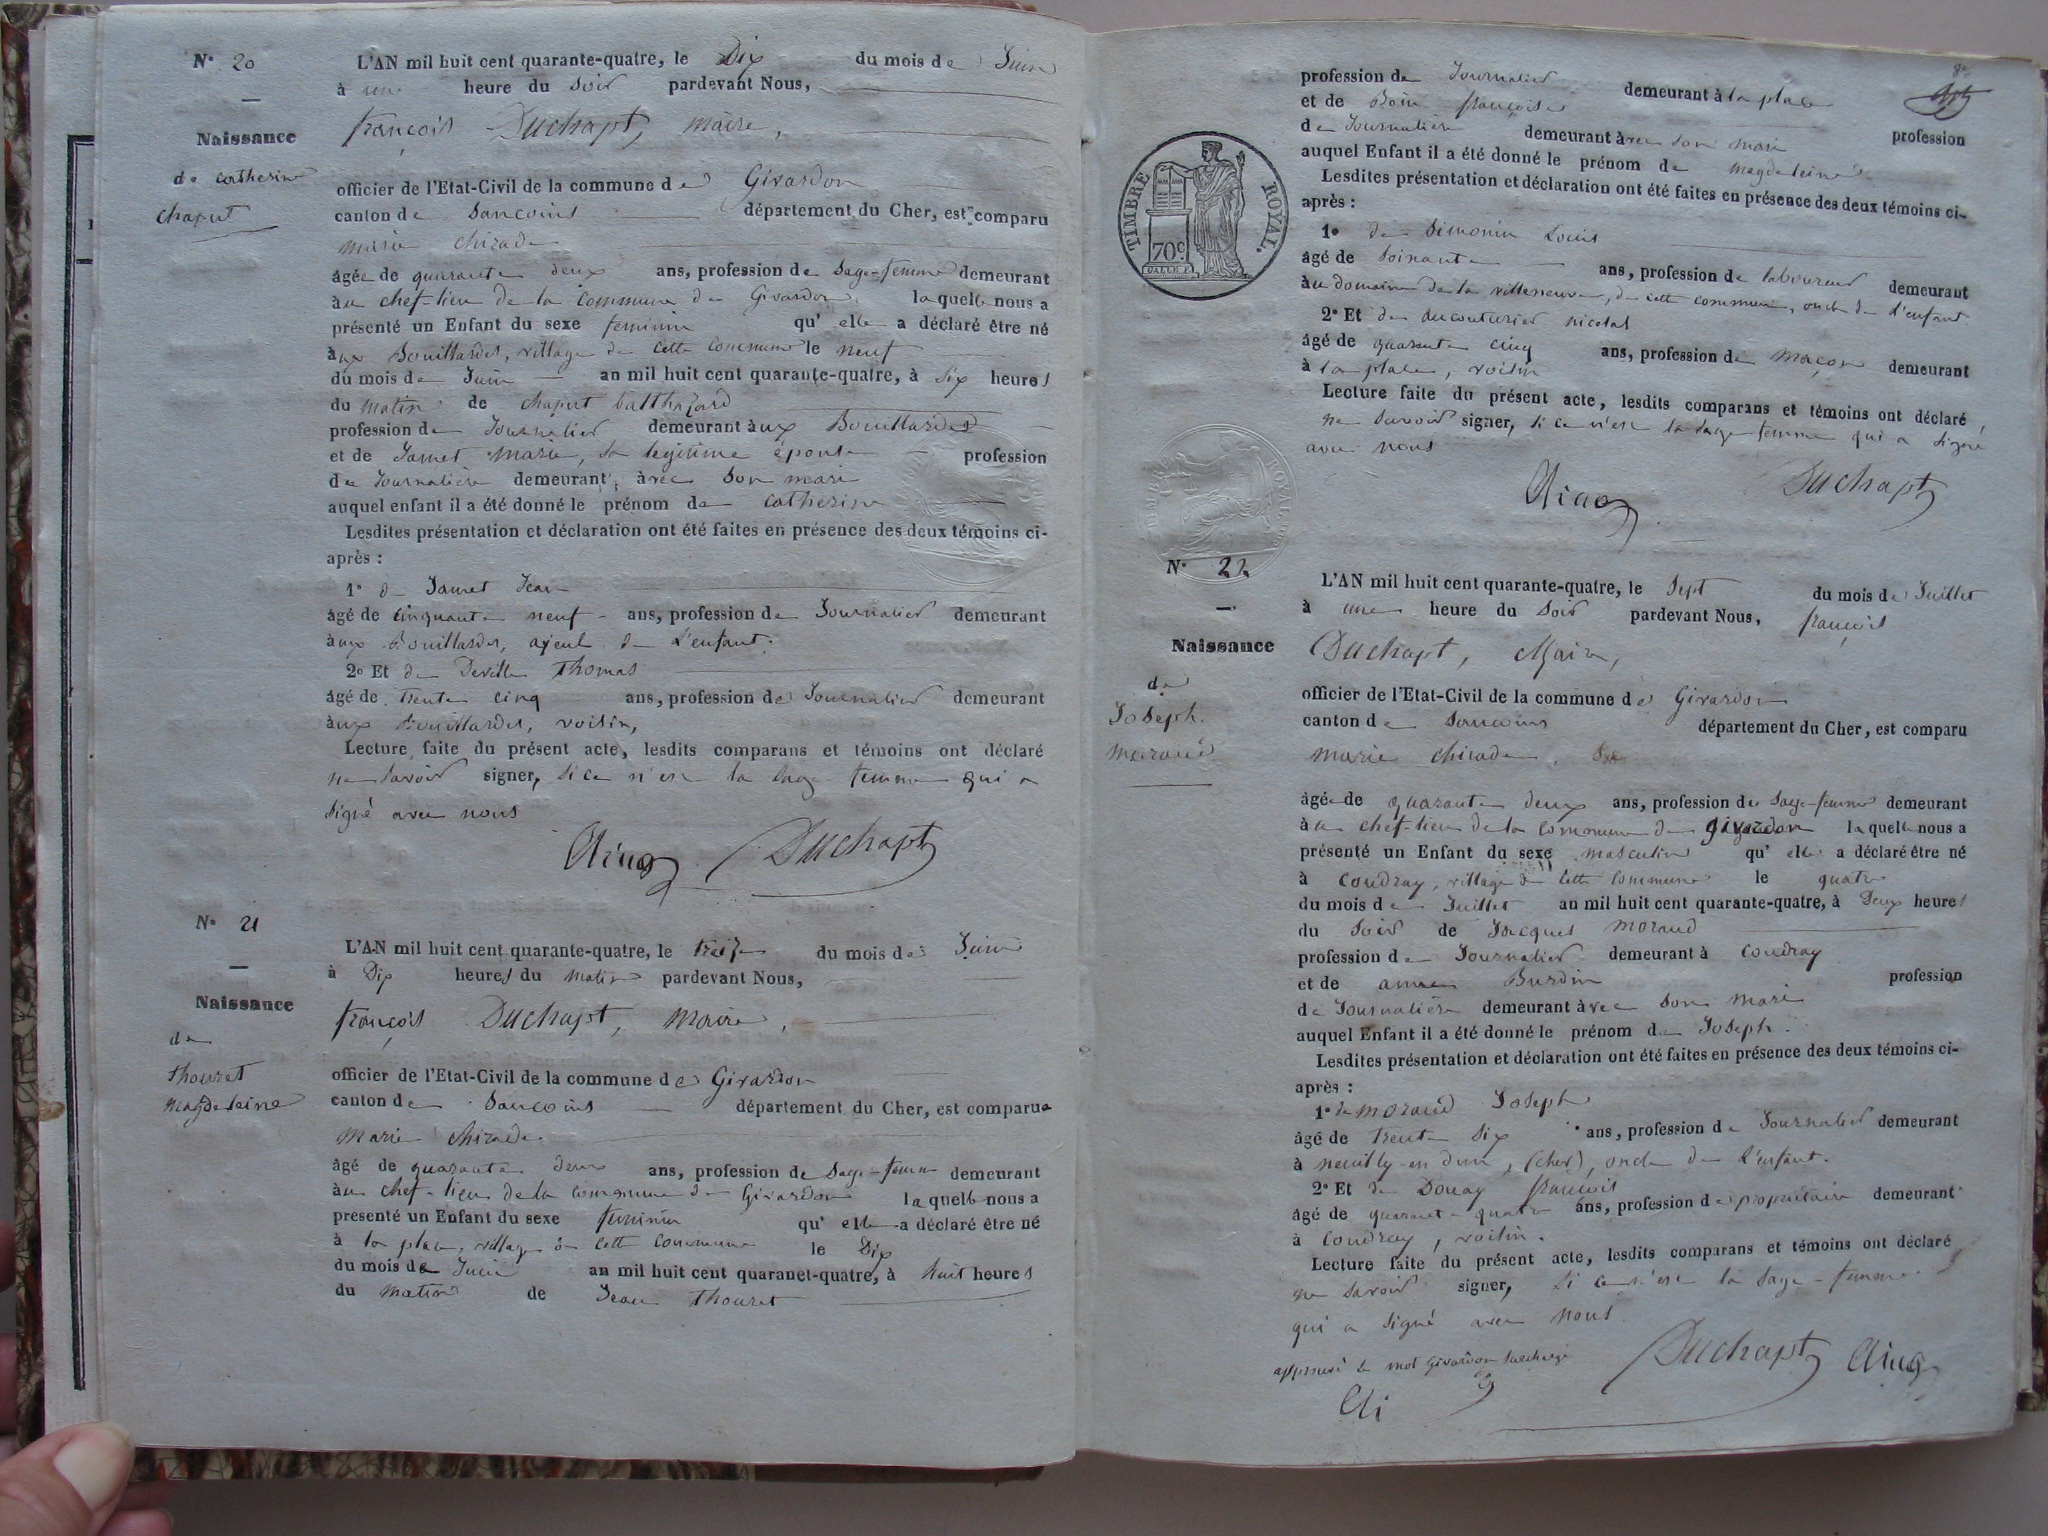 N° 20
Naissance
de catherine
chaput
L'AN mil huit cent quarante-quatre, le Dix du mois de Juin
à une heure du Soir pardevant Nous,
françois Duchapt, maire,
officier de l'Etat-Civil de la commune de Givardon
canton de Sancoins département du Cher, est comparu
marie chirade
âgée de quarante deux ans, profession de Sage-femme demeurant
à u chef-lieu de la commune de Givardon laquelle nous a
présenté un Enfant du sexe feminin qu' elle a déclaré être né
à ux Bouillardes, village de cette commune le neuf
du mois de Juin an mil huit cent quarante-quatre, à Six heures
du matin de chaput balthazard
profession de Journalier demeurant à ux Bouillardes
et de Jamet marie, Sa legitime épouse profession
de Journalière demeurant avec Son mari
auquel enfant il a été donné le prénom de catherine
Lesdites présentation et déclaration ont été faites en présence des deux témoins ci-
après :
1° d Jamet Jean
âgé de cinquante neuf ans, profession de Journalier demeurant
à ux Bouillardes, ayeul de L'enfant.
2° Et de Deville Thomas
âgé de trente cinq ans, profession de Journalier demeurant
à ux Bouillardes, voisin,
Lecture faite du présent acte, lesdits comparans et témoins ont déclaré
ne Savoir signer, Si ce n'est la Sage-femme qui a
Signé avec nous
Duchapt
N° 21
Naissance
de
thouret
magdeleine
L'AN mil huit cent quarante-quatre, le treize du mois de Juin
à Dix heures du matin pardevant Nous,
françois Duchapt, maire,
officier de l'Etat-Civil de la commune de Givardon
canton de Sancoins département du Cher, est comparue
Marie chirade
âgé de quarante deux ans, profession de Sage-femme demeurant
à u chef-lieu de la commune de Givardon laquelle nous a
présenté un Enfant du sexe feminin qu' elle a déclaré être né
à la place, village de cette commune le Dix
du mois de Juin an mil huit cent quaranet-quatre, à huit heures
du matin de Jean Thouret
profession de Journalier demeurant à la place
et de Boin françoise profession
de Journalière demeurant avec Son mari
auquel Enfant il a été donné le prénom de magdeleine
Lesdites présentation et déclaration ont été faites en présence des deux témoins ci-
après :
1° de Simonin Louis
âgé de Soixante ans, profession de laboureur demeurant
à u domaine de la villeneuve, de cette commune, oncle de L'enfant
2° Et de ducouturier nicolas
âgé de quarante cinq ans, profession de maçon demeurant
à la place, voisin
Lecture faite du présent acte, lesdits comparans et témoins ont déclaré
ne Savoir signer, Si ce n'est la Sage-femme qui a Signé
avec nous
Duchapt
TIMBRE ROYAL.
70c
N° 22
Naissance
de
Joseph
moraud
L'AN mil huit cent quarante-quatre, le Sept du mois de Juillet
à une heure du Soir pardevant Nous, françois
Duchapt, Maire,
officier de l'Etat-Civil de la commune de Givardon
canton de Sancoins département du Cher, est comparu
marie chirade
âgée de quarante deux ans, profession de Sage-femme demeurant
à u chef-lieu de la commune de givardon laquelle nous a
présenté un Enfant du sexe masculin qu' elle a déclaré être né
à coudray, village de cette commune le quatre
du mois de Juillet an mil huit cent quarante-quatre, à Deux heures
du Soir de Jacques moraud
profession de Journalier demeurant à coudray
et de anne Burdin profession
de Journalière demeurant avec Son mari
auquel Enfant il a été donné le prénom de Joseph.
Lesdites présentation et déclaration ont été faites en présence des deux témoins ci-
après :
1° de moraud Joseph
âgé de trente Six ans, profession de Journalier demeurant
à neuilly-en dun, (cher), oncle de L'enfant.
2° Et de Douay françois
âgé de quarante quatre ans, profession de propriétaire demeurant
à coudray, voisin.
Lecture faite du présent acte, lesdits comparans et témoins ont déclaré
ne Savoir signer, Si ce n'est la Sage-femme
qui a Signé avec nous
approuvé le mot Givardon Surchargé
Duchapt